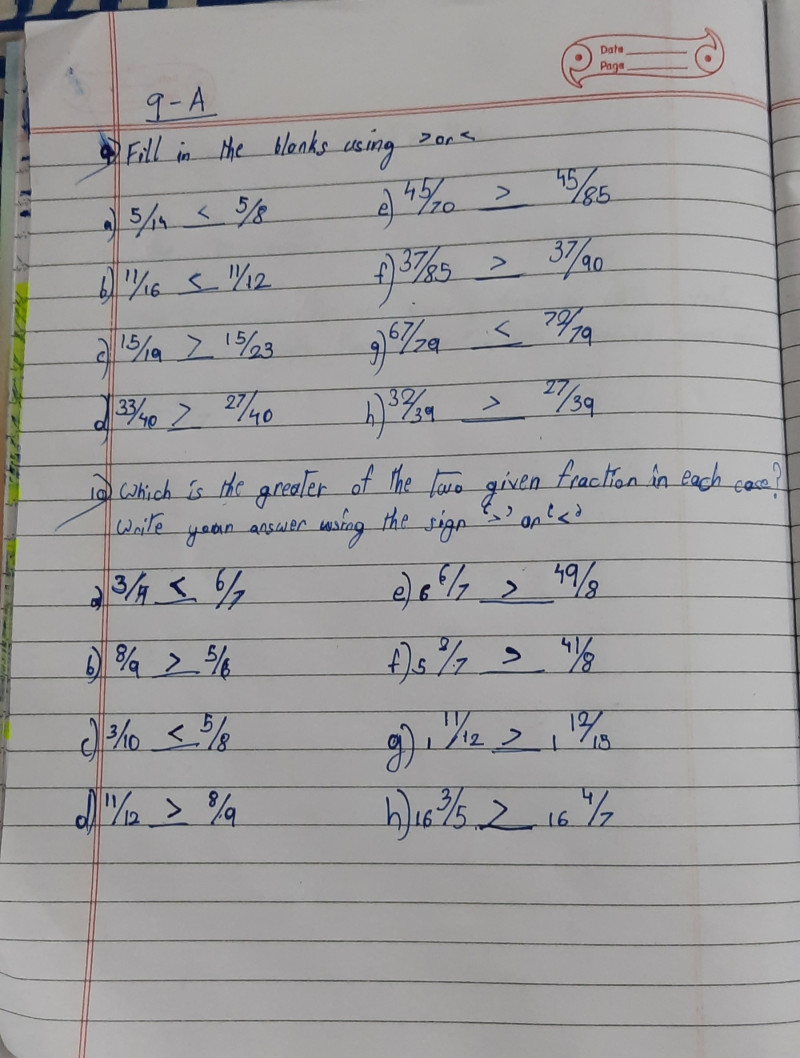 Date
Page
9-A
9) Fill in the blanks using > or <
a) 5/14 < 5/8 e) 45/70 > 45/85
b) 11/16 < 11/12 f) 37/85 > 37/90
c) 15/19 > 15/23 g) 67/79 < 70/79
d) 33/40 > 27/40 h) 32/39 > 27/39
10) Which is the greater of the two given fraction in each case?
Write your answer using the sign '>' or '<'
a) 3/7 < 6/7 e) 6 6/7 > 49/8
b) 8/9 > 5/6 f) 5 /7 > 41/8
c) 3/10 < 5/8 g) 1 11/12 > 1 12/13
d) 11/12 > 8/9 h) 16 3/5 > 16 4/7